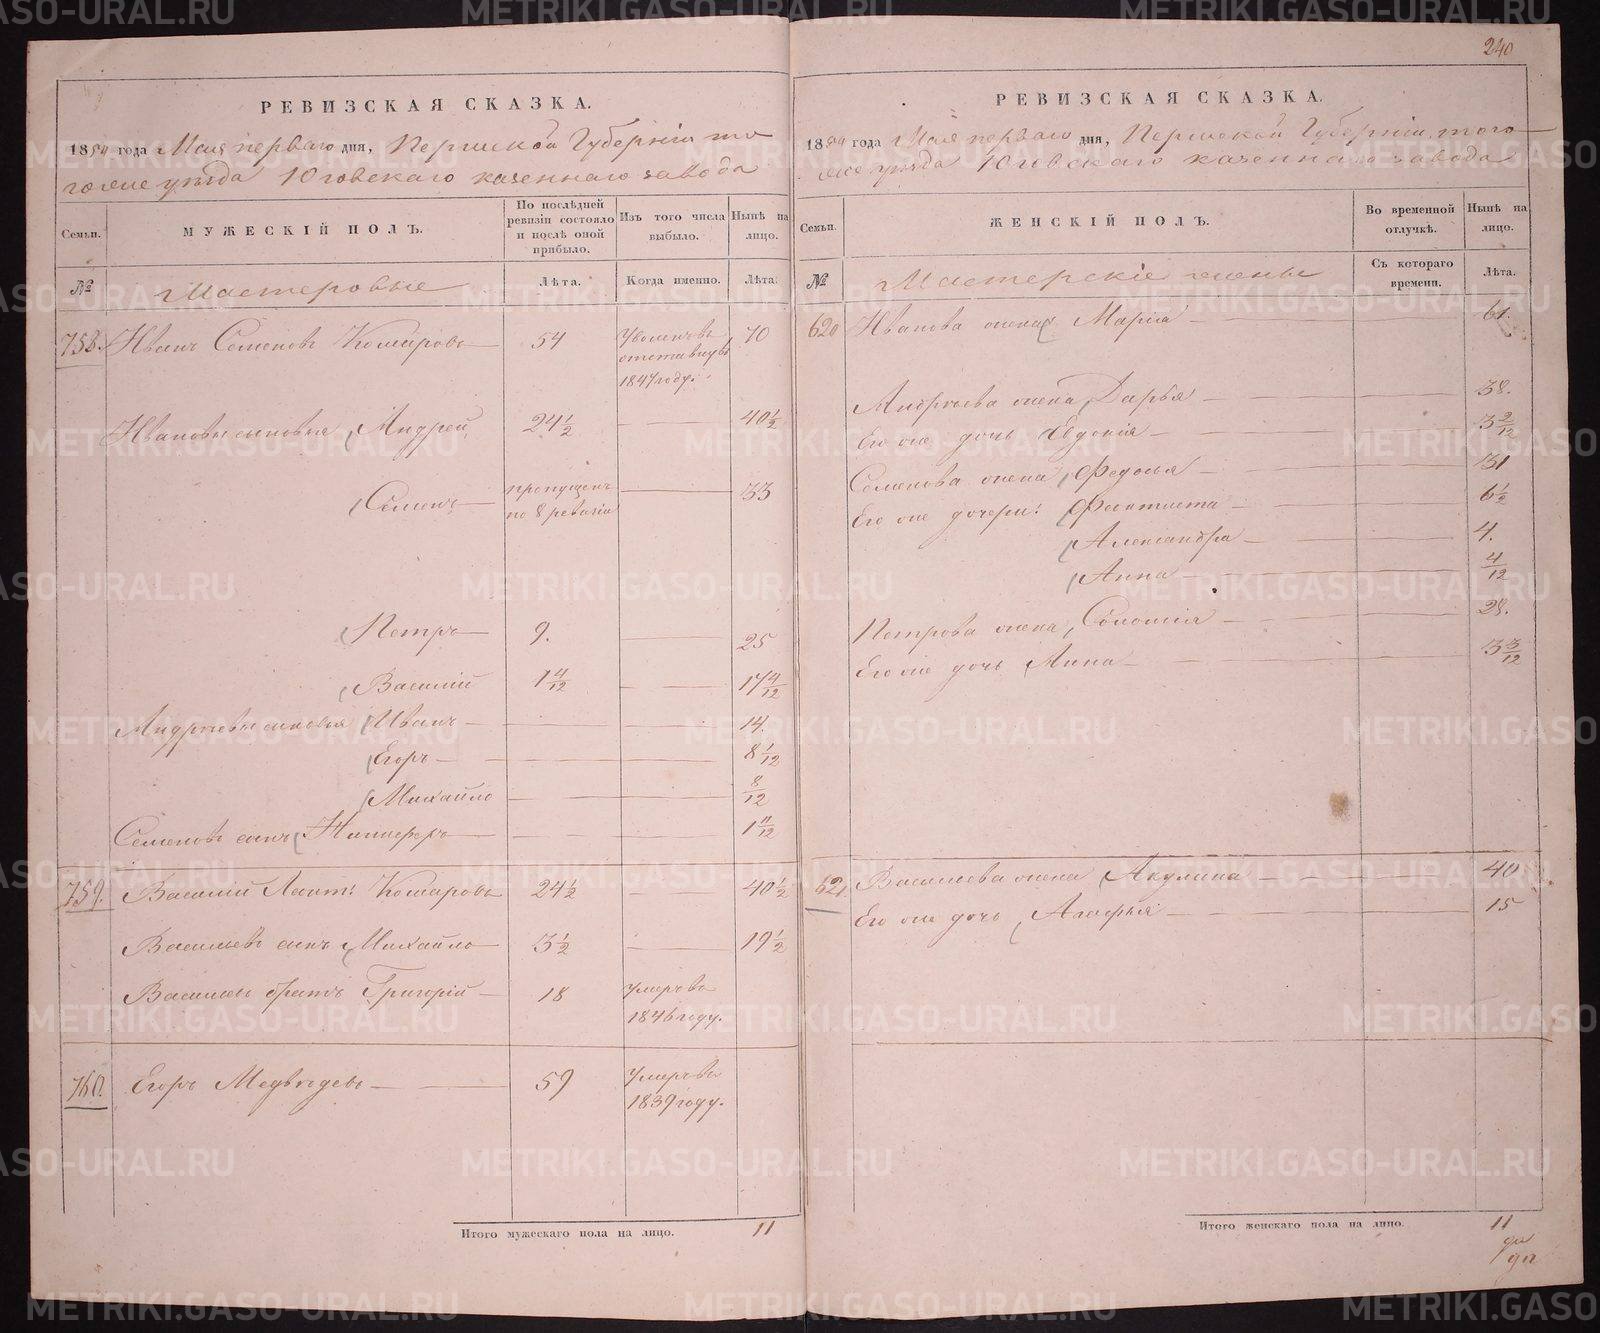 240
РЕВИЗСКАЯ СКАЗКА.
1854 года Мая перваго дня, Пермской Губерніи то
гоже уѣзда Юговскаго казеннаго завода
Семьи.
МУЖЕСКІЙ ПОЛЪ.
По послѣдней ревизіи состояло и послѣ оной прибыло.
Изъ того числа выбыло.
Нынѣ на лицо.
№
Мастеровые
Лѣта.
Когда именно.
Лѣта.
758. Иванъ Семеновъ Комаровъ 54 Уволенъ въ отставку въ 1847 году. 70
Ивановы сыновья Андрей 24 1/2 40 1/2
Семенъ пропущенъ по 8 ревизіи 33
Петръ 9. 25
Василій 1 4/12 17 4/12
Андреевы сыновья Иванъ 14.
Егоръ 8 1/12
Михайло 8/12
Семеновъ сынъ Никифоръ 1 11/12
759. Василій Комаровъ 24 1/2 40 1/2
Васильевъ сынъ Михайло 3 1/2 19 1/2
Васильевъ братъ Григорій 18 умеръ въ 1846 году.
760. Егоръ Медвѣдевъ 59 умеръ въ 1839 году.
Итого мужескаго пола на лицо. 11
РЕВИЗСКАЯ СКАЗКА.
1854 года Мая перваго дня, Пермской Губерніи того
же уѣзда Юговскаго казеннаго завода
Семьи.
ЖЕНСКІЙ ПОЛЪ.
Во временной отлучкѣ.
Нынѣ на лицо.
№
Мастерскіе жены
Съ котораго времени.
Лѣта.
620 Иванова жена Марія 61.
Андреева жена Дарья 38.
Его же дочь Евдокія 3 2/12
Семенова жена Федосья 31
Его же дочери: Феоктиста 6 1/2
Александра 4.
Анна 4/12
Петрова жена Соломія 28.
Его же дочь Анна 3 3/12
621. Васильева жена Акулина 40
Его же дочь Агафья 15
Итого женскаго пола на лицо. 11